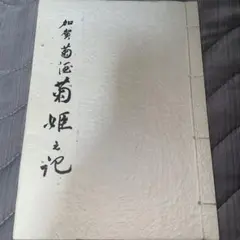 加賀菊酒菊姫之記